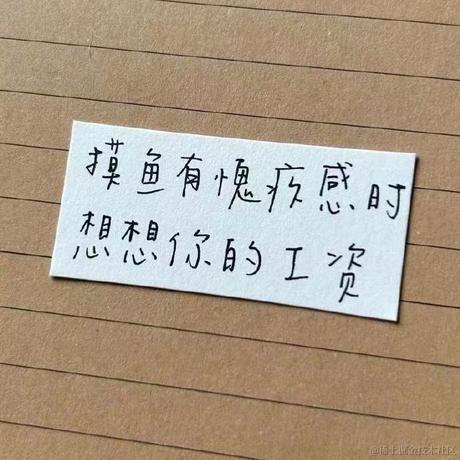 摸鱼有愧疚感时
想想你的工资
@稀土掘金技术社区